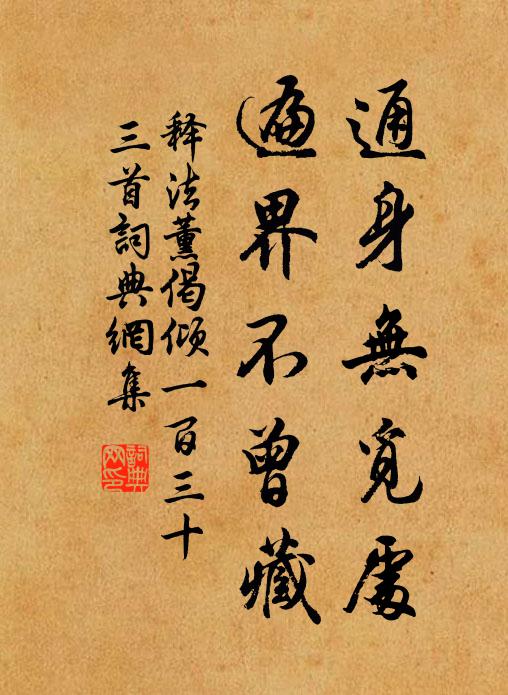 通身無覓處
遍界不曾藏
释法薰偈倾一百三十
三首詞典網集
詞典网印